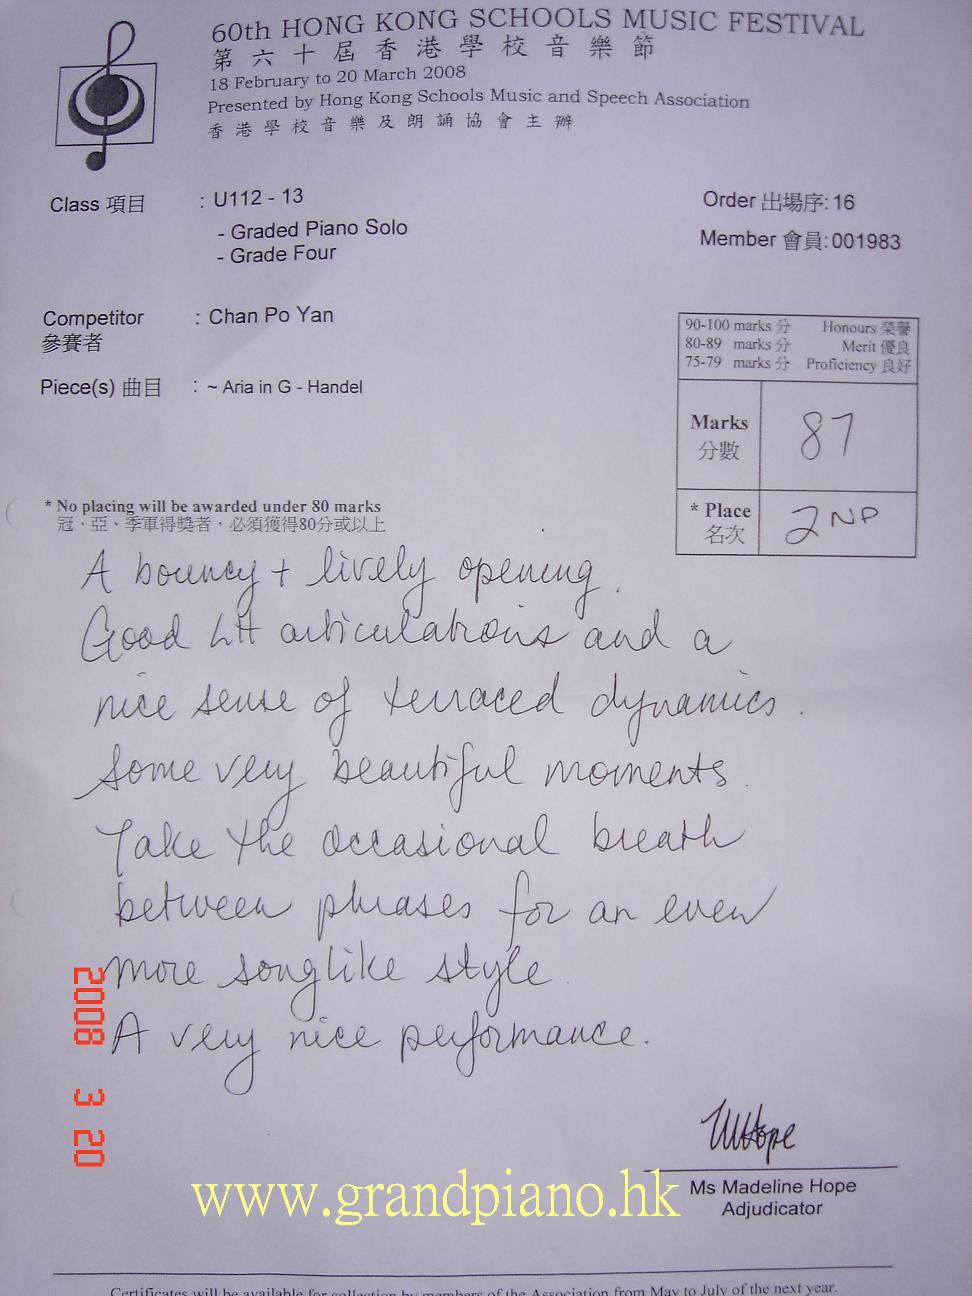 60th HONG KONG SCHOOLS MUSIC FESTIVAL
第六十屆香港學校音樂節
18 February to 20 March 2008
Presented by Hong Kong Schools Music and Speech Association
香港學校音樂及朗誦協會主辦
Class 項目 : U112 - 13
- Graded Piano Solo
- Grade Four
Order 出場序: 16
Member 會員: 001983
Competitor : Chan Po Yan
參賽者
Piece(s) 曲目 : ~ Aria in G - Handel
90-100 marks 分 Honours 榮譽
80-89 marks 分 Merit 優良
75-79 marks 分 Proficiency 良好
Marks 87
分數
* Place 2ND
名次
* No placing will be awarded under 80 marks
冠、亞、季軍得獎者，必須獲得80分或以上
A bouncy + lively opening.
Good LH articulations and a
nice sense of terraced dynamics.
Some very beautiful moments.
Take the occasional breath
between phrases for an even
more songlike style.
A very nice performance.
2008 3 20
MHope
Ms Madeline Hope
Adjudicator
www.grandpiano.hk
Certificates will be available for collection by members of the Association from May to July of the next year.